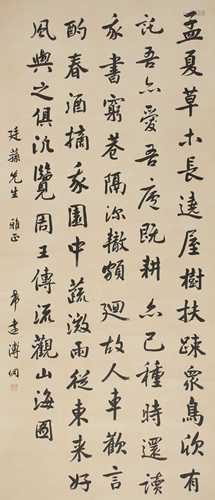 孟夏草木長遶屋樹扶踈衆鳥欣有
託吾亦愛吾廬既耕亦已種時還讀
我書窮巷隔深轍頗廻故人車歡言
酌春酒摘我園中蔬微雨從東來好
風與之俱汎覽周王傳流觀山海圖
先生 雅正
溥侗